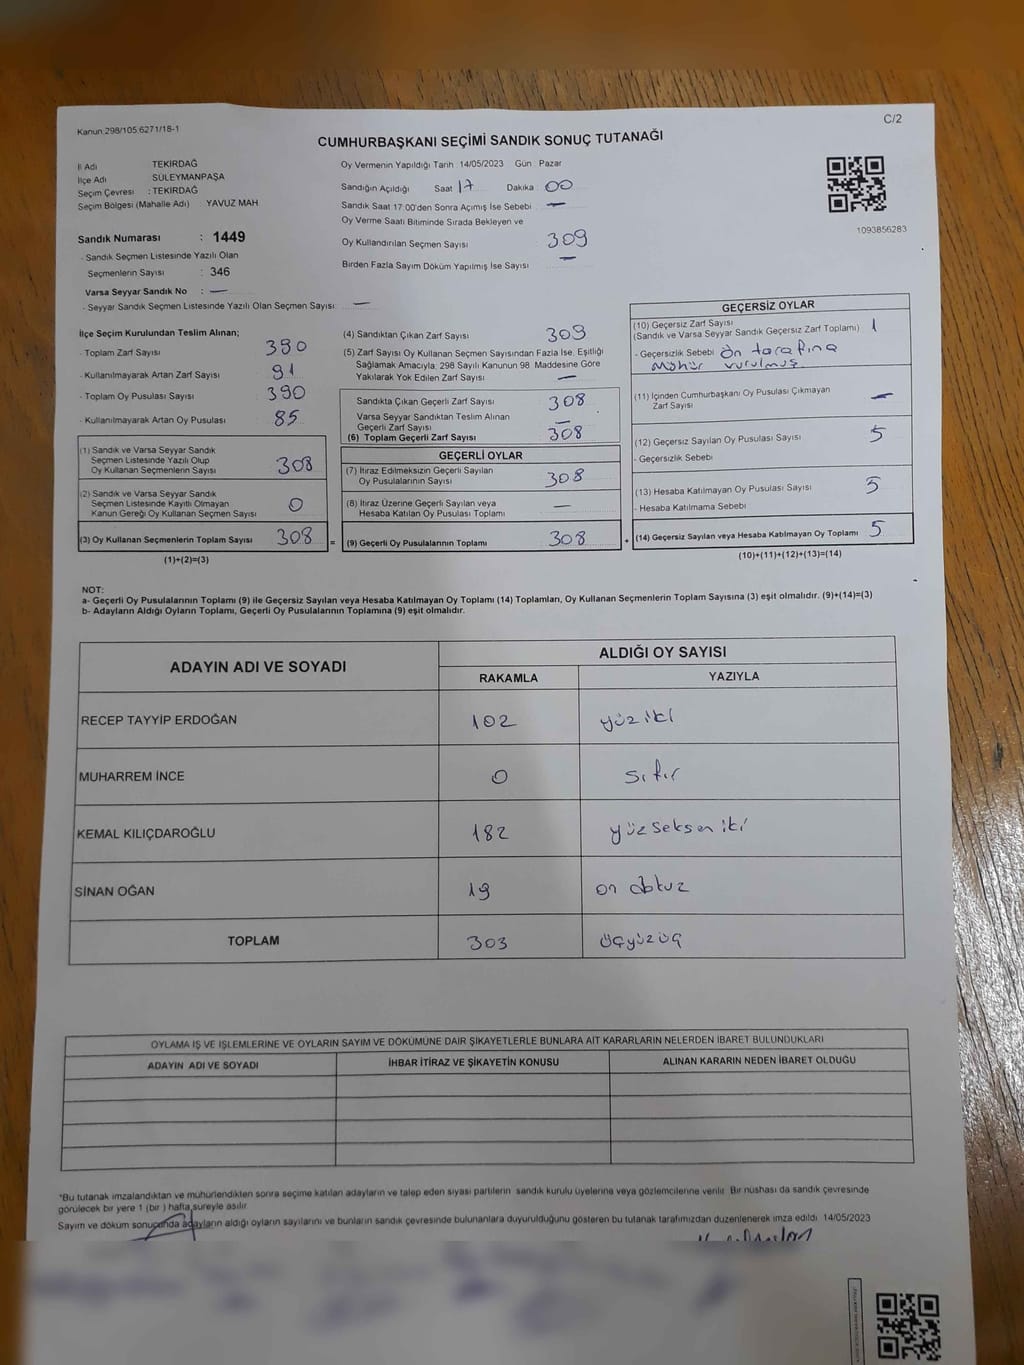 Kanun.298/105.6271/18-1
C/2
CUMHURBAŞKANI SEÇİMİ SANDIK SONUÇ TUTANAĞI
İl Adı TEKİRDAĞ
İlçe Adı SÜLEYMANPAŞA
Seçim Çevresi : TEKİRDAĞ
Seçim Bölgesi (Mahalle Adı) YAVUZ MAH
Sandık Numarası : 1449
- Sandık Seçmen Listesinde Yazılı Olan
Seçmenlerin Sayısı : 346
Varsa Seyyar Sandık No : —
- Seyyar Sandık Seçmen Listesinde Yazılı Olan Seçmen Sayısı: —
Oy Vermenin Yapıldığı Tarih 14/05/2023 Gün Pazar
Sandığın Açıldığı Saat 17 Dakika 00
Sandık Saat 17:00'den Sonra Açımış İse Sebebi —
Oy Verme Saati Bitiminde Sırada Bekleyen ve
Oy Kullandırılan Seçmen Sayısı 309
Birden Fazla Sayım Döküm Yapılmış İse Sayısı —
1093856283
İlçe Seçim Kurulundan Teslim Alınan;
- Toplam Zarf Sayısı 390
- Kullanılmayarak Artan Zarf Sayısı 91
- Toplam Oy Pusulası Sayısı 390
- Kullanılmayarak Artan Oy Pusulası 85
(1) Sandık ve Varsa Seyyar Sandık
Seçmen Listesinde Yazılı Olup
Oy Kullanan Seçmenlerin Sayısı 308
(2) Sandık ve Varsa Seyyar Sandık
Seçmen Listesinde Kayıtlı Olmayan
Kanun Gereği Oy Kullanan Seçmen Sayısı 0
(3) Oy Kullanan Seçmenlerin Toplam Sayısı 308 =
(1)+(2)=(3)
(4) Sandıktan Çıkan Zarf Sayısı 309
(5) Zarf Sayısı Oy Kullanan Seçmen Sayısından Fazla İse, Eşitliği
Sağlamak Amacıyla, 298 Sayılı Kanunun 98. Maddesine Göre
Yakılarak Yok Edilen Zarf Sayısı —
Sandıkta Çıkan Geçerli Zarf Sayısı 308
Varsa Seyyar Sandıktan Teslim Alınan
Geçerli Zarf Sayısı —
(6) Toplam Geçerli Zarf Sayısı 308
GEÇERLİ OYLAR
(7) İtiraz Edilmeksizin Geçerli Sayılan
Oy Pusulalarının Sayısı 308
(8) İtiraz Üzerine Geçerli Sayılan veya
Hesaba Katılan Oy Pusulası Toplamı —
(9) Geçerli Oy Pusulalarının Toplamı 308 +
GEÇERSİZ OYLAR
(10) Geçersiz Zarf Sayısı
(Sandık ve Varsa Seyyar Sandık Geçersiz Zarf Toplamı) 1
- Geçersizlik Sebebi Ön tarafına
mühür vurulmuş.
(11) İçinden Cumhurbaşkanı Oy Pusulası Çıkmayan
Zarf Sayısı —
(12) Geçersiz Sayılan Oy Pusulası Sayısı 5
- Geçersizlik Sebebi
(13) Hesaba Katılmayan Oy Pusulası Sayısı 5
- Hesaba Katılmama Sebebi
(14) Geçersiz Sayılan veya Hesaba Katılmayan Oy Toplamı 5
(10)+(11)+(12)+(13)=(14)
NOT:
a- Geçerli Oy Pusulalarının Toplamı (9) ile Geçersiz Sayılan veya Hesaba Katılmayan Oy Toplamı (14) Toplamları, Oy Kullanan Seçmenlerin Toplam Sayısına (3) eşit olmalıdır. (9)+(14)=(3)
b- Adayların Aldığı Oyların Toplamı, Geçerli Oy Pusulalarının Toplamına (9) eşit olmalıdır.
ADAYIN ADI VE SOYADI
ALDIĞI OY SAYISI
RAKAMLA YAZIYLA
RECEP TAYYİP ERDOĞAN 102 yüziki
MUHARREM İNCE 0 sıfır
KEMAL KILIÇDAROĞLU 182 yüzseksen iki
SİNAN OĞAN 19 on dokuz
TOPLAM 303 üçyüzüç
OYLAMA İŞ VE İŞLEMLERİNE VE OYLARIN SAYIM VE DÖKÜMÜNE DAİR ŞİKAYETLERLE BUNLARA AİT KARARLARIN NELERDEN İBARET BULUNDUKLARI
ADAYIN ADI VE SOYADI İHBAR İTİRAZ VE ŞİKAYETİN KONUSU ALINAN KARARIN NEDEN İBARET OLDUĞU
*Bu tutanak imzalandıktan ve mühürlendikten sonra seçime katılan adayların ve talep eden siyasi partilerin sandık kurulu üyelerine veya gözlemcilerine verilir. Bir nüshası da sandık çevresinde
görülecek bir yere 1 (bir ) hafta süreyle asılır.
Sayım ve döküm sonucunda adayların aldığı oyların sayılarını ve bunların sandık çevresinde bulunanlara duyurulduğunu gösteren bu tutanak tarafımızdan düzenlenerek imza edildi. 14/05/2023